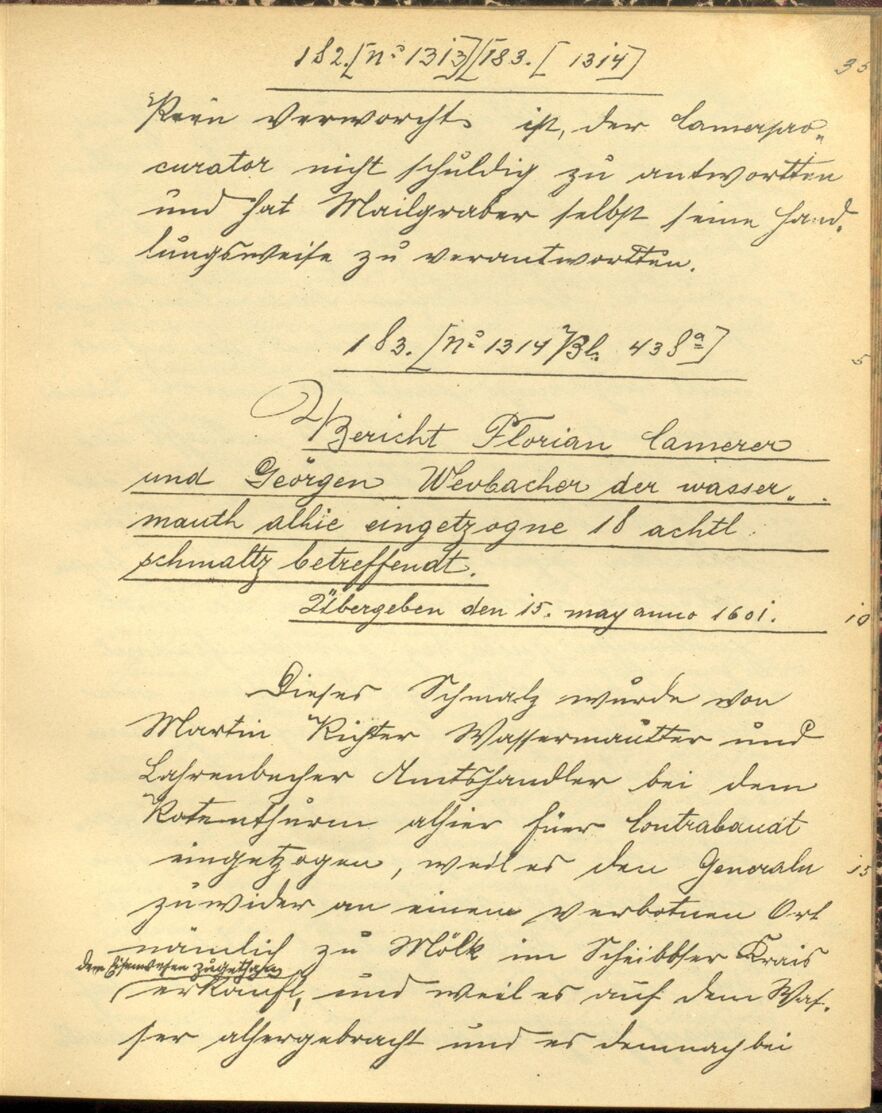 182. [No 1313] [183. [1314]
35
Rein verworcht ist, der Camerpro-
curator nicht schuldig zu antwortten
und hat Mailgraber selbst seine Hand-
lungsweise zu verantwortten.
183. [No 1314 Bl. 438a]
5
Bericht Florian Camerer
und Geörgen Weobacher der wasser-
mauth alhie eingetzogne 18 achtl
schmaltz betreffendt.
Übergeben den 15. may anno 1601.
10
Dieses Schmalz wurde von
Martin Richter Wassermautter und
Lahrenbecher Amtshandler bei dem
Rotenthurm alhier füer Contrabandt
eingetzogen, weil es den Generaln
15
zuwider an einem verbotnen Ort
nämlich zu Mölk im Scheibbser Krais
dem Eisenwesen zugethan
erkauft, und weil es auf dem Was-
ser alhergebracht und es demnach bei